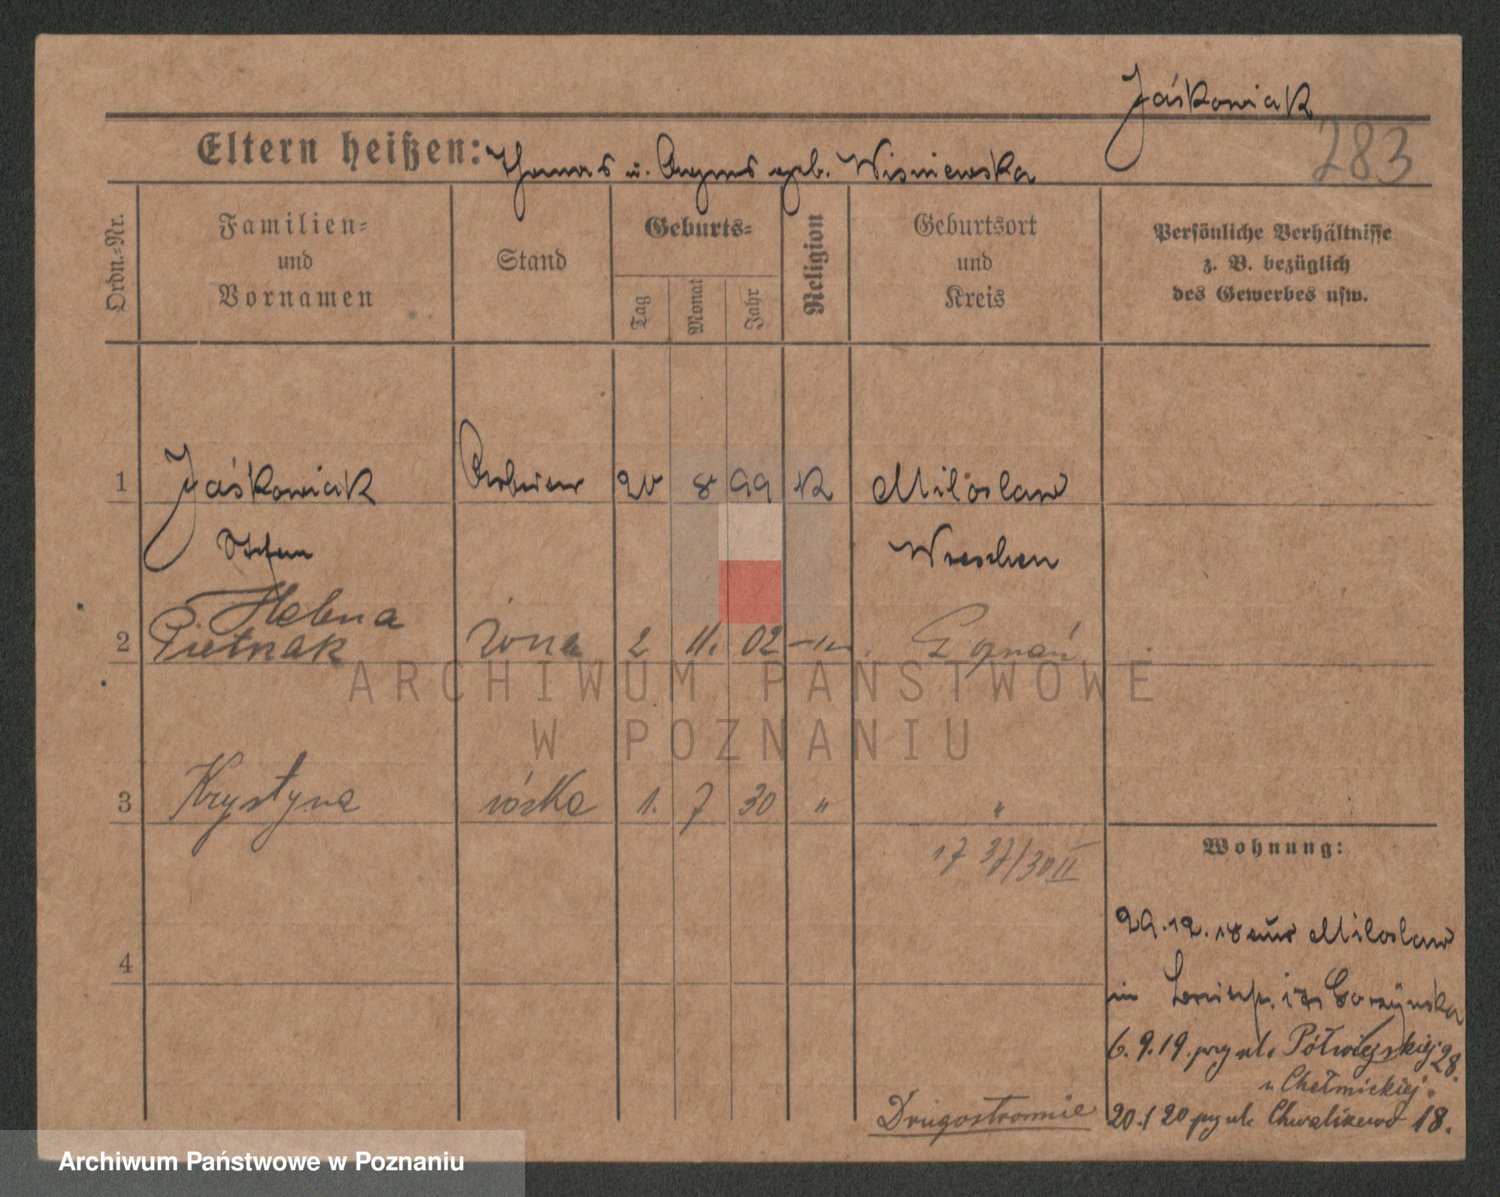 Jaśkowiak
283
Eltern heißen: Thomas u. Agnes geb. Wisniewska
Ordn.-Nr.
Familien-
und
Vornamen
Stand
Geburts-
Tag
Monat
Jahr
Religion
Geburtsort
und
Kreis
Persönliche Verhältnisse
z. B. bezüglich
des Gewerbes usw.
1 Jaśkowiak Arbeiter 20 8 99 K Miloslaw
Stefan Wreschen
Helena
2 Pietrzak żona 2 11. 02 Poznań
3 Krystyna córka 1. 7 30 " "
17 37/30 II
4
Wohnung:
29.12.18 aus Miloslaw
6.9.19. przy ul. Półwiejskiej 28.
u Chełmickiej.
20.1 20 przy ul. Chwaliszewo 18.
Drugostronnie
ARCHIWUM PAŃSTWOWE
W POZNANIU
Archiwum Państwowe w Poznaniu